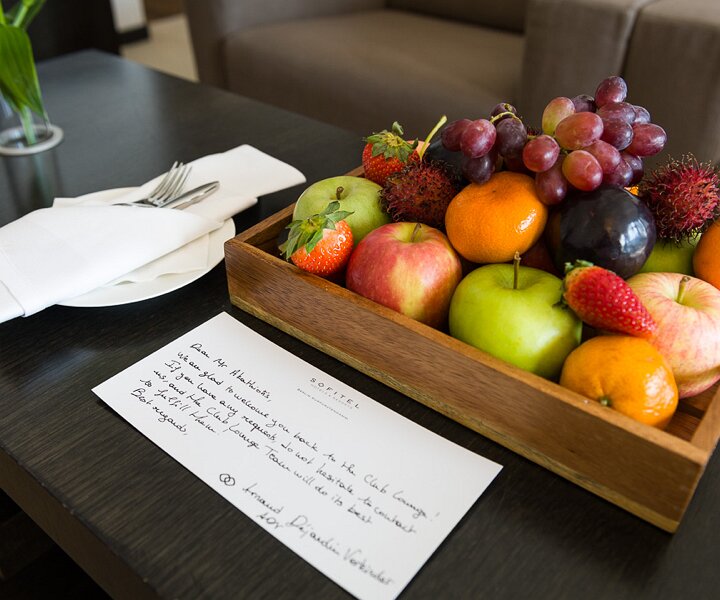 SOFITEL
Dear Mr
We are glad to welcome you back to the Club Lounge!
If you have any request, do not hesitate to contact
us, and the Club Lounge Team will do its best
to fulfill them.
Best regards,
Arnaud